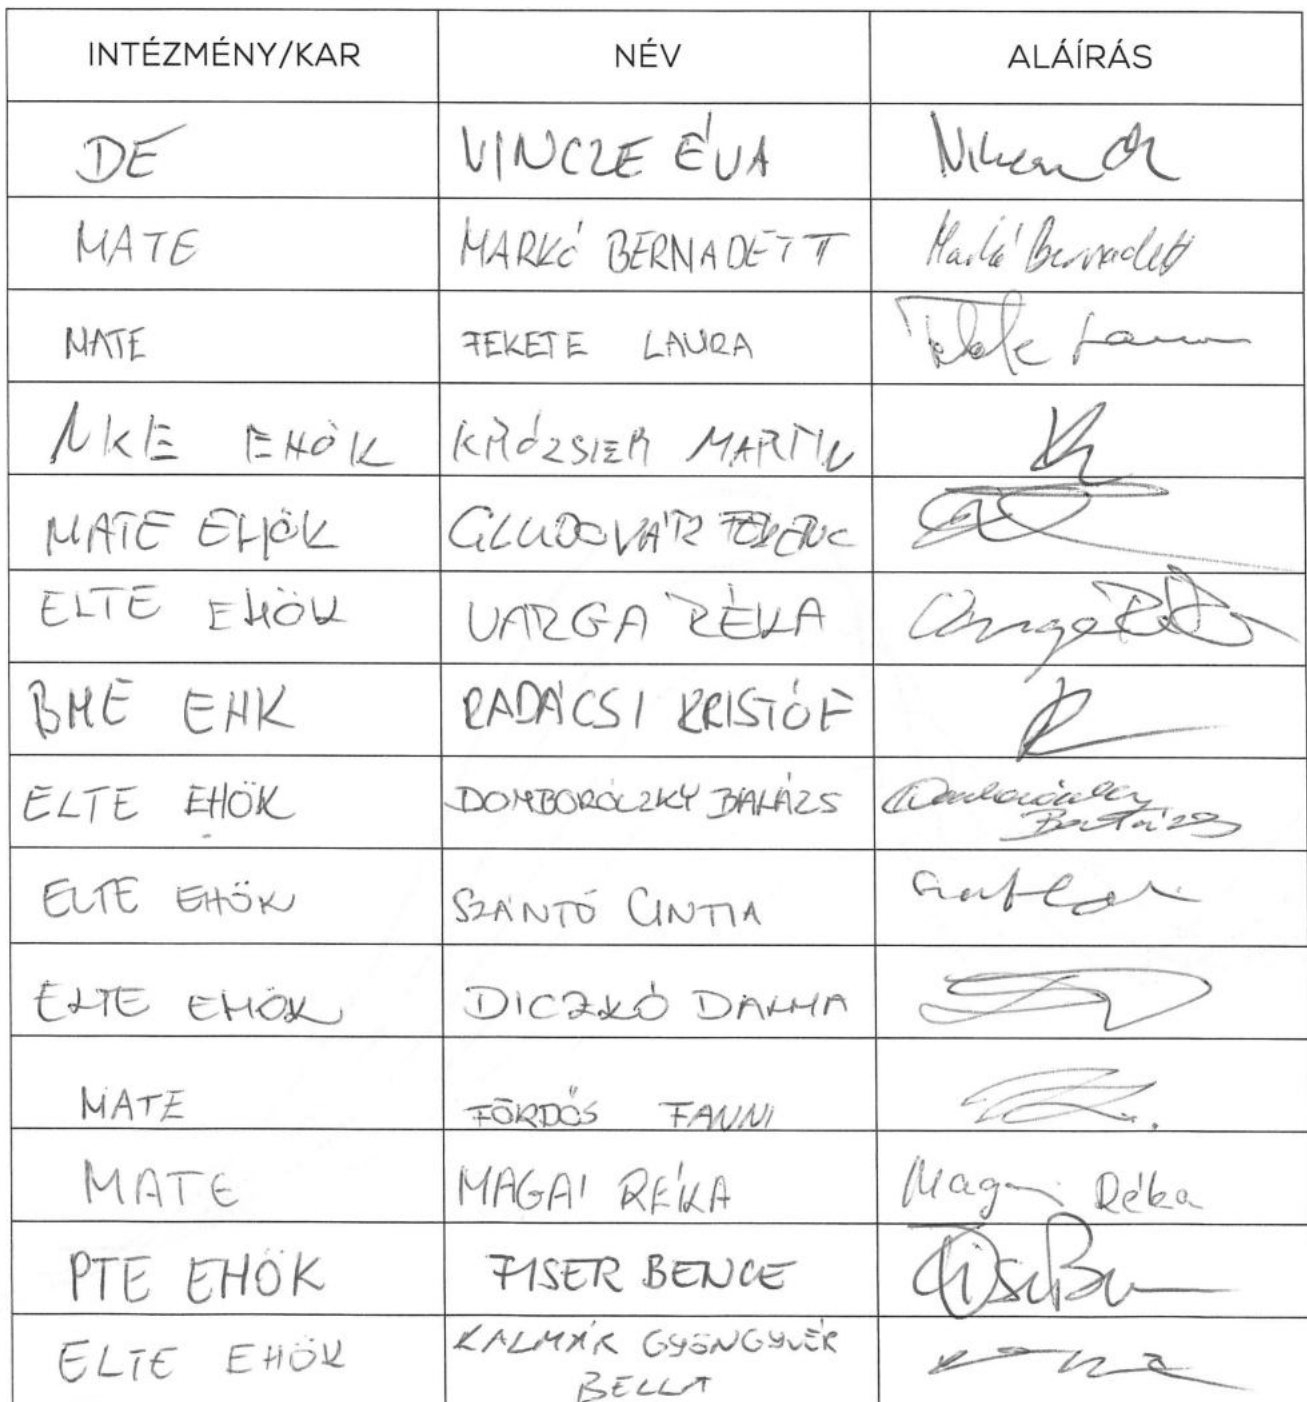 INTÉZMÉNY/KAR NÉV ALÁÍRÁS
DE VINCZE ÉVA
MATE MARKÓ BERNADETT Markó Bernadett
MATE FEKETE LAURA Fekete Laura
NKE EHÖK MARTIN
MATE EHÖK GLUDOVÁTZ FERENC
ELTE EHÖK VARGA RÉKA Varga Réka
BME EHK RADÁCSI KRISTÓF
ELTE EHÖK DOMBORÓCZKY BALÁZS Domboróczky
Balázs
ELTE EHÖK SZÁNTÓ CINTIA
ELTE EHÖK DICZKÓ DALMA
MATE FÖRDŐS FANNI
MATE MAGAI RÉKA Magai Réka
PTE EHÖK FISER BENCE
ELTE EHÖK KALMÁR GYÖNGYVÉR
BELLA